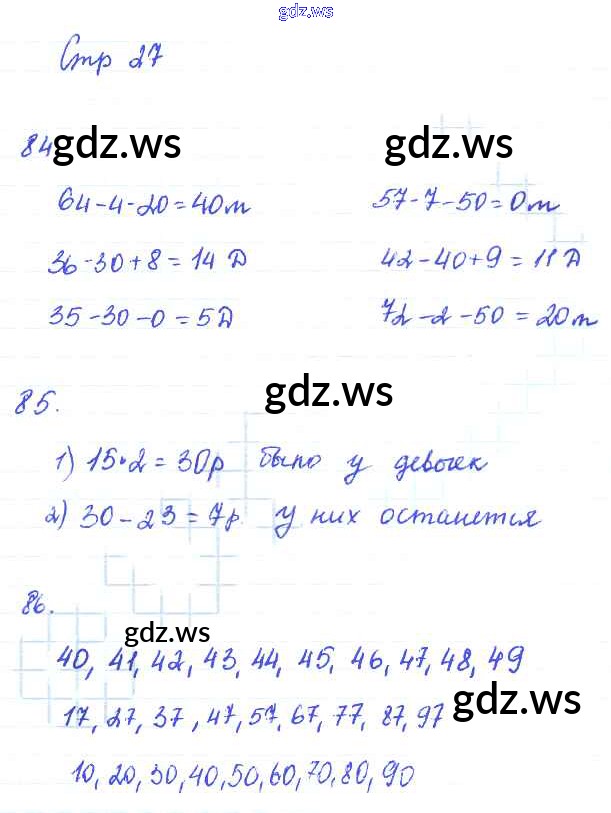 gdz.ws
Стр 27
84 gdz.ws gdz.ws
64-4-20=40т 57-7-50=0т
36-30+8=14 Д 42-40+9=11 Д
35-30-0=5Д 72-2-50=20т
85. gdz.ws
1) 15·2=30р было у девочек
2) 30-23=7р. у них останется
86.
gdz.ws
40, 41, 42, 43, 44, 45, 46, 47, 48, 49
gdz.ws
17, 27, 37, 47, 57, 67, 77, 87, 97
10, 20, 30, 40, 50, 60, 70, 80, 90